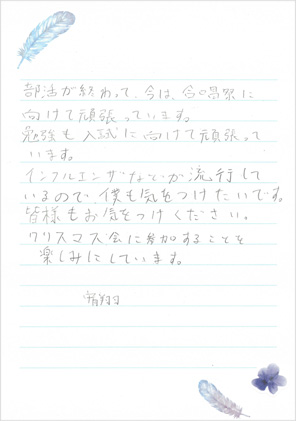 部活が終わって、今は、合唱祭に
向けて頑張っています。
勉強も入試に向けて頑張って
います。
インフルエンザなどが流行して
いるので、僕も気をつけたいです。
皆様もお気をつけください。
クリスマス会に参加することを
楽しみにしています。